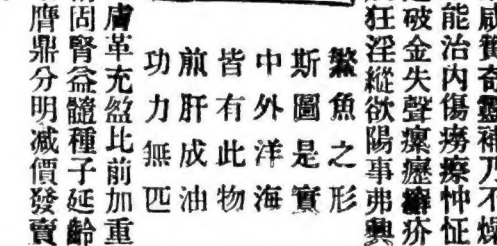 咸贊奇靈補乃不燥
能治內傷癆瘵忡怔
破金失聲瘰癧癬疥
狂淫縱欲陽事弗興
鰵魚之形
斯圖是實
中外洋海
皆有此物
煎肝成油
功力無匹
膚革充盈比前加重
固腎益髓種子延齡
膺鼎分明减價發賣